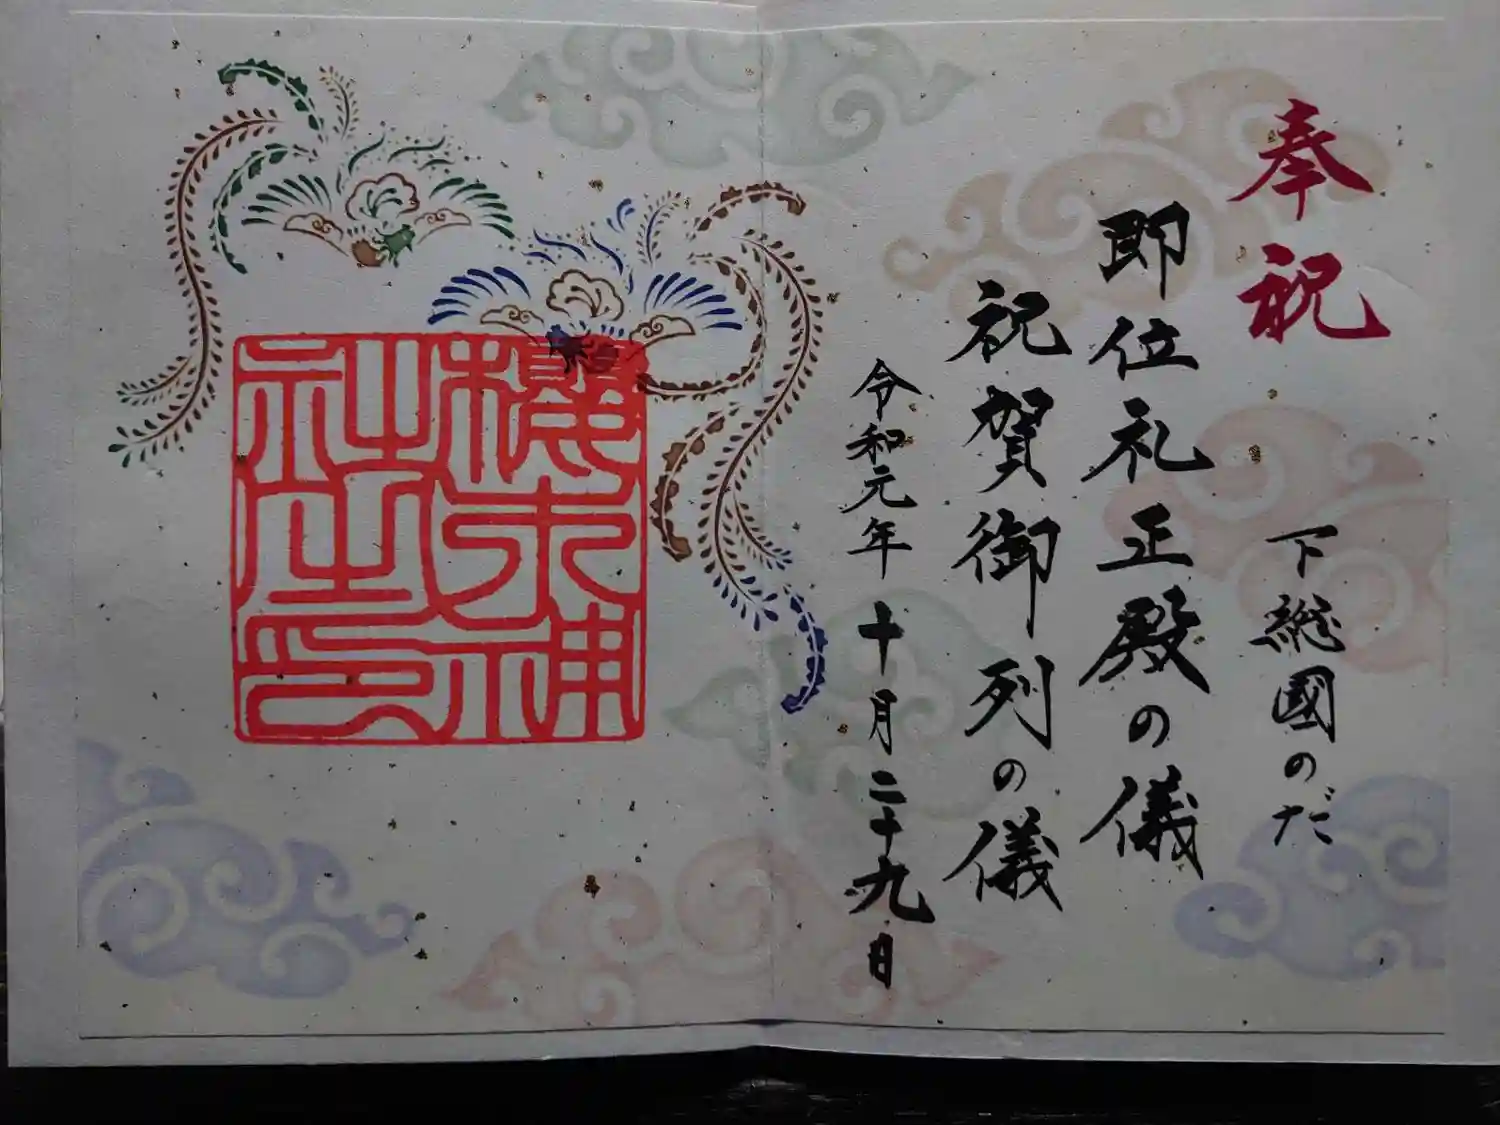 奉祝
下総國のだ
即位礼正殿の儀
祝賀御列の儀
令和元年十月二十九日
櫻木神社之印